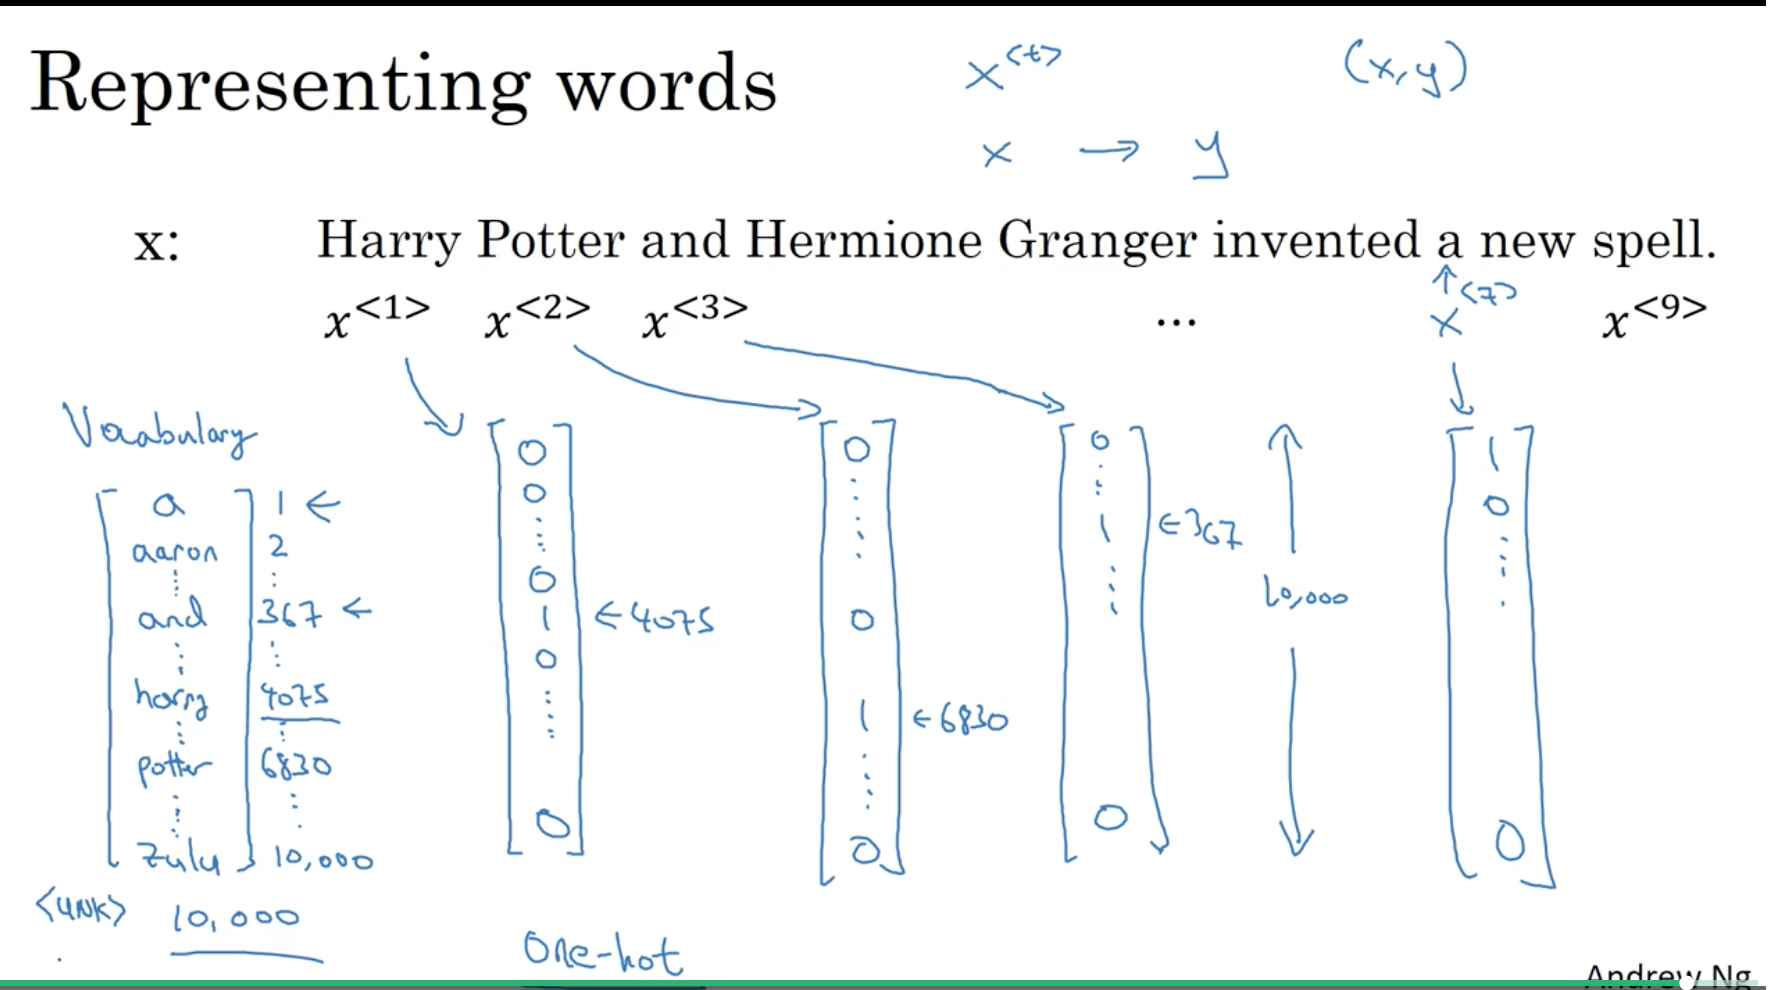 Representing words
x<t> (x,y)
x → y
x: Harry Potter and Hermione Granger invented a new spell.
x<1> x<2> x<3> ... x<7> x<9>
Vocabulary
a 1 ←
aaron 2
and 367 ←
harry 4075
potter 6830
zulu 10,000
<UNK> 10,000
0
0
0
1 ← 4075
0
0
0
0
1 ← 6830
0
0
1 ← 367
0
10,000
1
0
0
One-hot
Andrew Ng